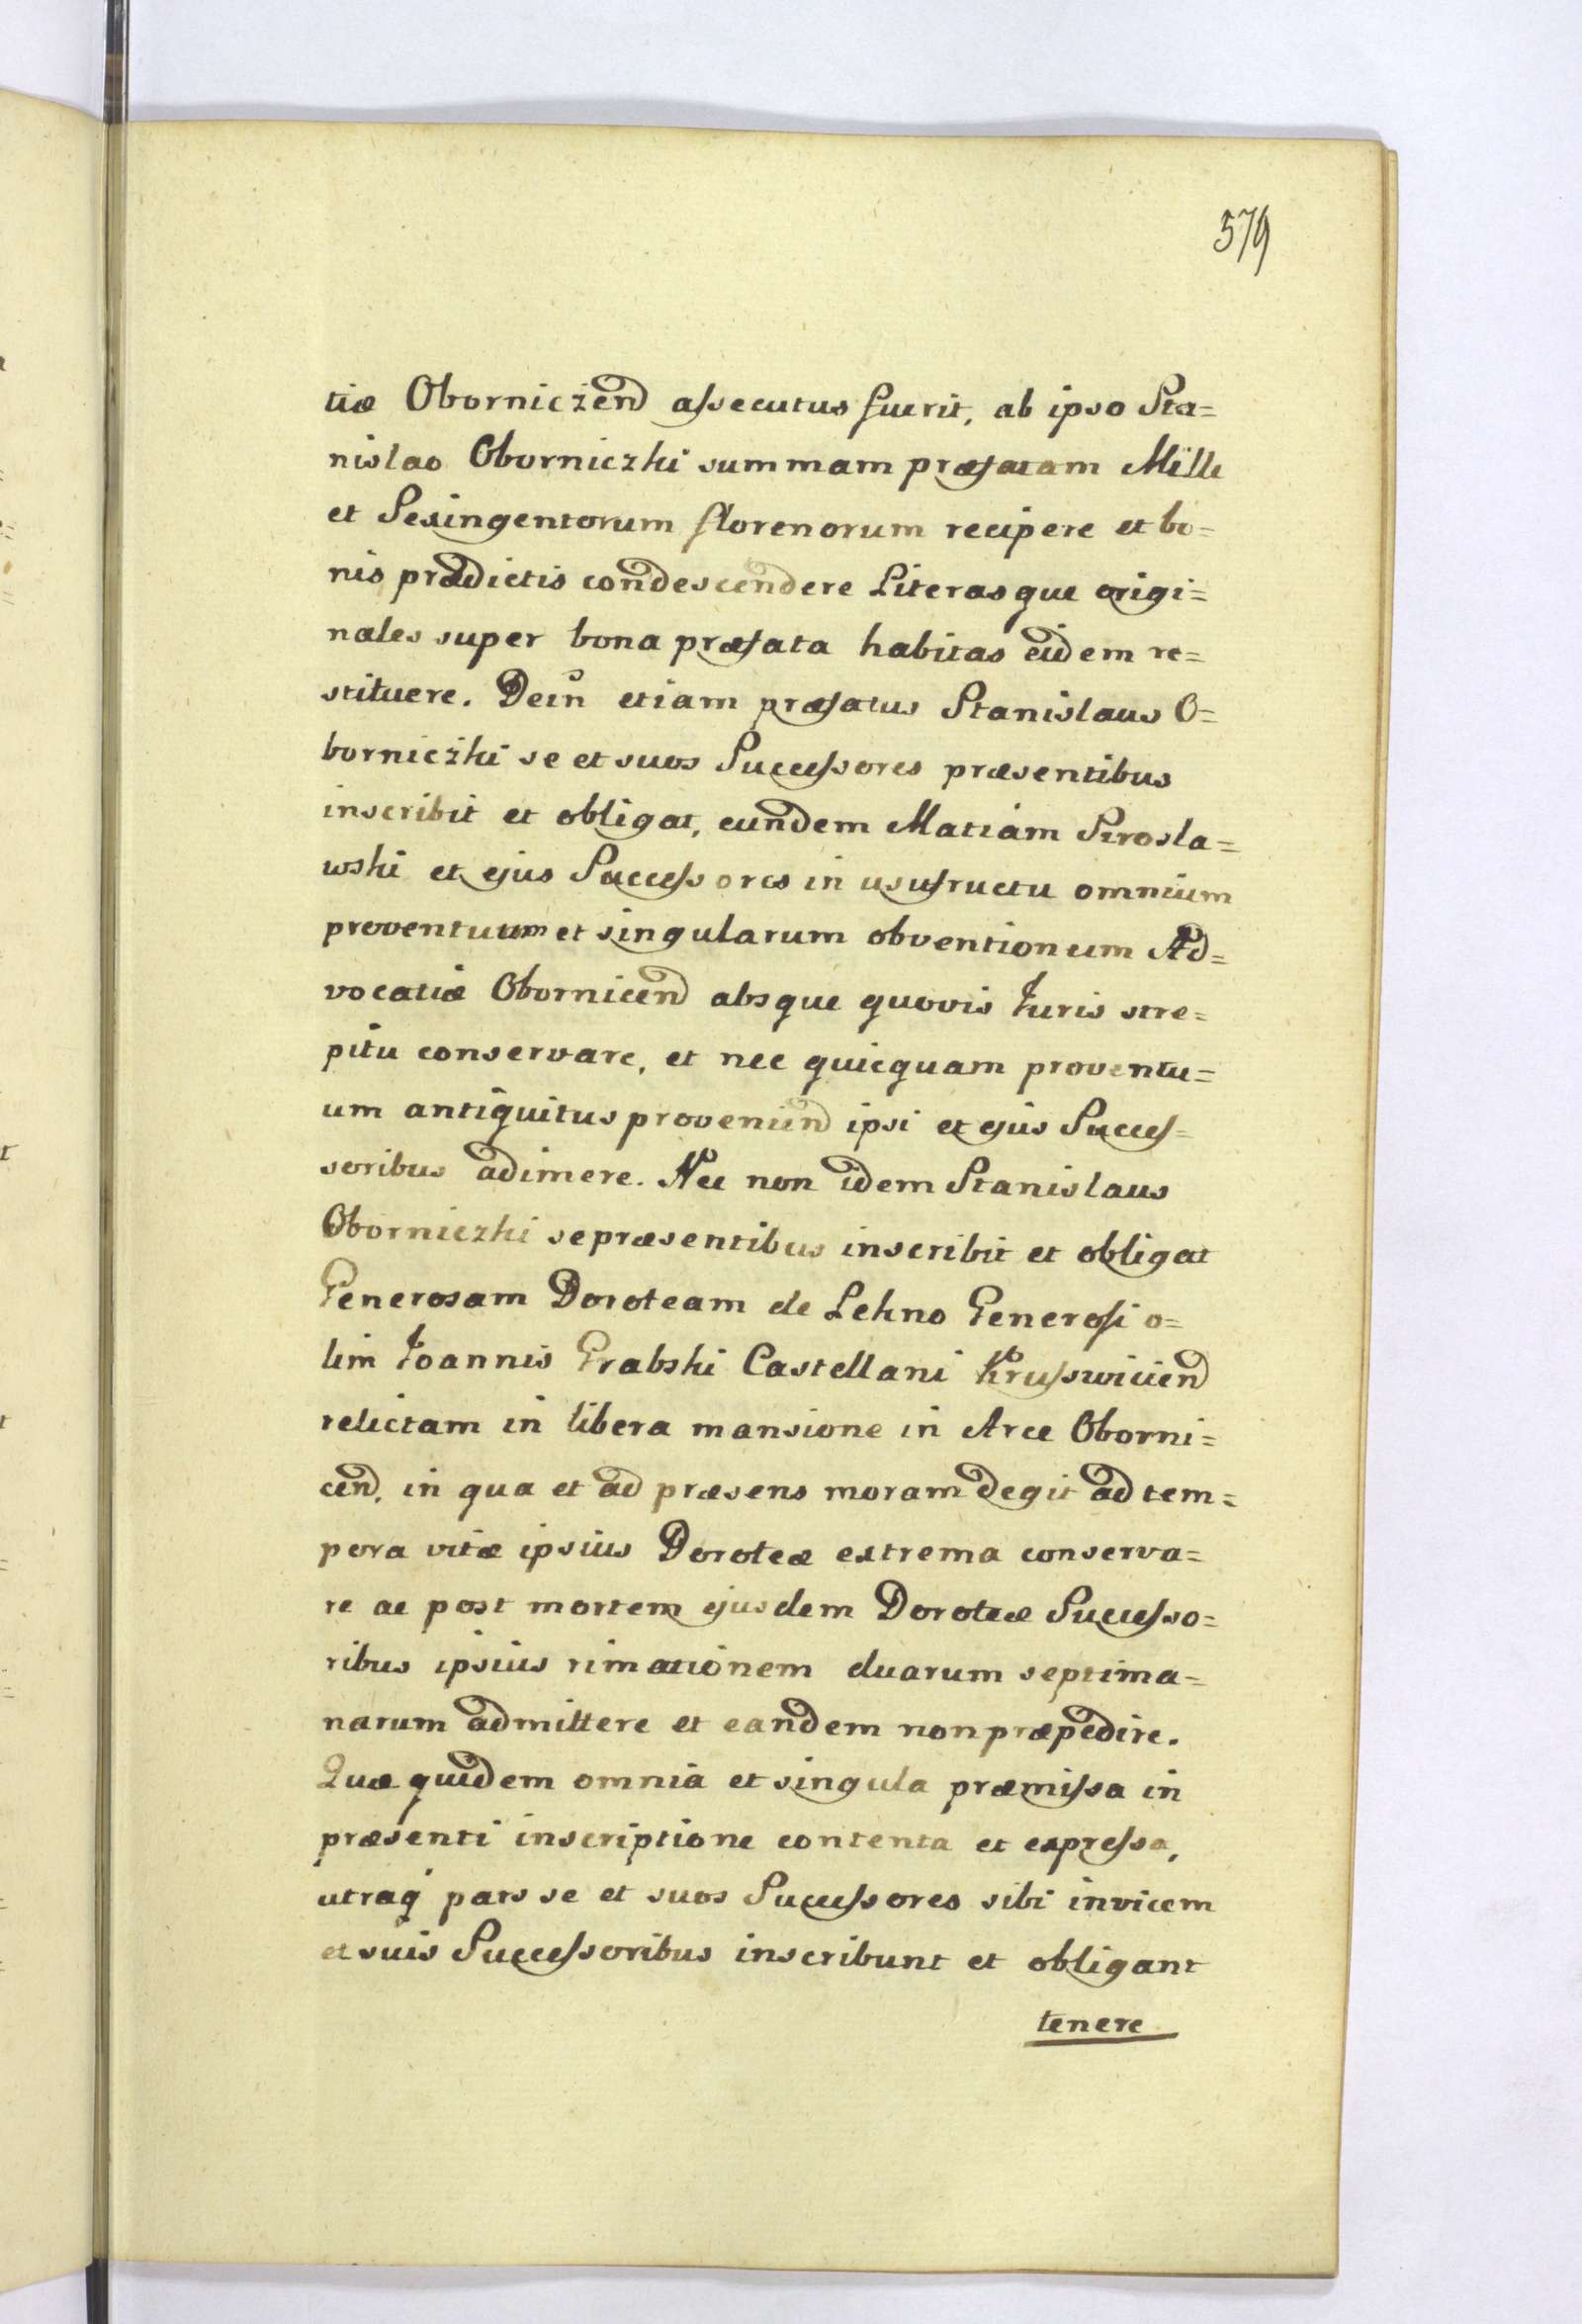 579
tiæ Oborniczen̄d aſsecutus fuerit, ab ipso Sta=
nislao Oborniczki summam præfatam Mille
et Sexingentorum florenorum recipere et bo=
nis prædictis condescendere Literasque origi=
nales super bona præfata habitas eidem re=
stituere. Dein etiam præfatus Stanislaus O=
borniczki se et suos Succeſsores præsentibus
inscribit et obligat, eundem Matiam Sirosla=
wski et ejus Succeſsores in usufructu omnium
proventuum et singularum obventionum Ad=
vocatiæ Obornicen̄d absque quovis Juris stre=
pitu conservare, et nec quicquam proventu=
um antiquitus provenien̄d ipsi et ejus Succeſ=
soribus adimere. Nec non idem Stanislaus
Oborniczki se præsentibus inscribit et obligat
Generosam Doroteam de Lekno Generoſi o=
lim Joannis Grabski Castellani Kruſswicien̄d
relictam in libera mansione in Arce Oborni=
cen̄d, in qua et ad præsens moram degit ad tem=
pora vitæ ipsius Doroteæ extrema conserva=
re ac post mortem ejusdem Doroteæ Succeſso=
ribus ipsius rimationem duarum septima=
narum admittere et eandem non præpedire.
Quæ quidem omnia et singula præmiſsa in
præsenti inscriptione contenta et expreſsa,
utraq̀ pars se et suos Succeſsores sibi invicem
et suis Succeſsoribus inscribunt et obligant
tenere